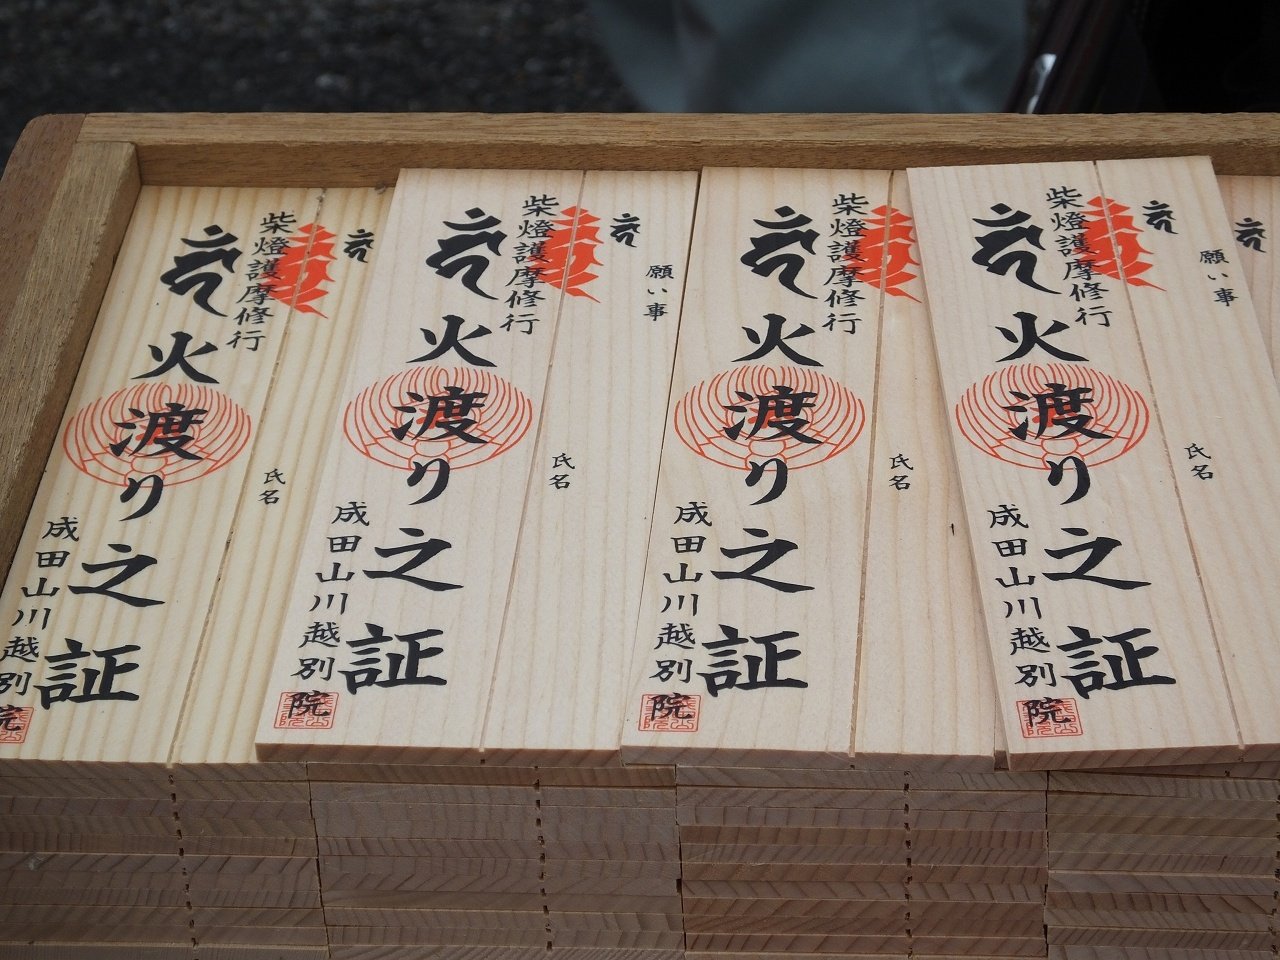 柴燈護摩修行
火渡り之証
成田山川越別院
氏名
願い事
柴燈護摩修行
火渡り之証
成田山川越別院
氏名
柴燈護摩修行
火渡り之証
成田山川越別院
願い事
氏名
柴燈護摩修行
火渡り之証
成田山川越別院
氏名